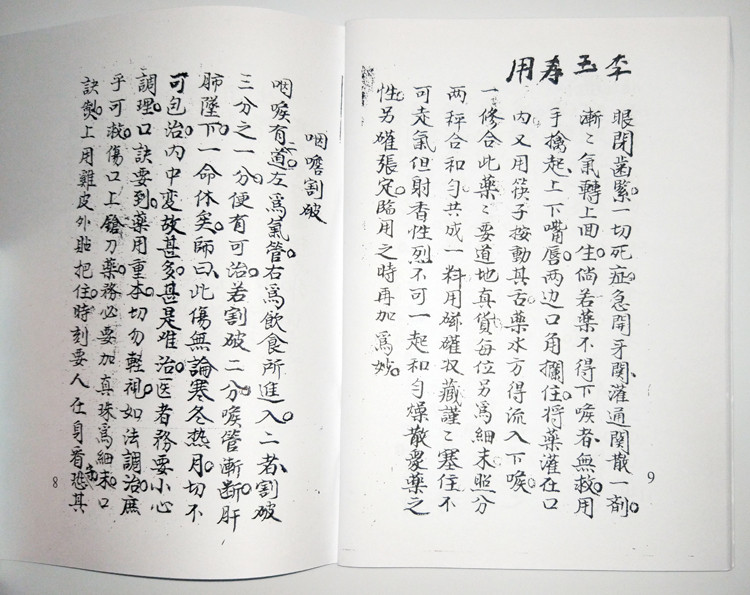 李玉寿用
眼閉歯緊一切死症急開牙関灌通関散一剤
漸〻氣轉上面生倘若薬不得下喉者無救用
手擒起上下嘴唇両边口角攔住将薬灌在口
内又用筷子按動其舌薬水方得流入下喉
一修合此薬〻要道地真貨每位另為細末照分
両秤合和勻共成一料用磁礶収藏謹〻塞住不
可走氣但射香性烈不可一起和勻燥散衆薬之
性另礶張定臨用之時再加為妙
9
咽喉割破
咽喉有二道左為氣管右為飲食所進入二者割破
三分之一分便有可治若割破二分喉管漸断肝
肺墜下一命休矣師曰此傷無論寒冬热月切不
可包治内中変故甚多甚是难治医者務要小心
調理口訣要到薬用重本切勿輕視如法調治庶
乎可救傷口上鎗刀薬務必要加真珠為細末口
訣製上用雞皮外貼把住時刻要人在身看恐其
8